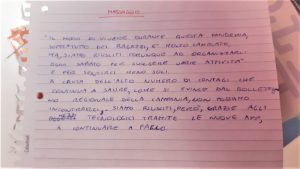 MESSAGGIO
"IL MODO DI VIVERE DURANTE QUESTA PANDEMIA,
SOPRATUTTO DEI RAGAZZI, È MOLTO CAMBIATO.
MA, SIAMO RIUSCITI COMUNQUE AD ORGANIZZARCI
OGNI SABATO PER SVOLGERE VARIE ATTIVITÀ
E PER SENTIRCI MENO SOLI.
A CAUSA DELL'ALTO NUMERO DI CONTAGI, CHE
CONTINUA A SALIRE, COME SI EVINCE DAL BOLLETTI-
NO REGIONALE DELLA CAMPANIA, NON POSSIAMO
INCONTRARCI. SIAMO RIUSCITI, PERÒ, GRAZIE AGLI
TECNOLOGICI TRAMITE LE NUOVE APP,
A CONTINUARE A FARLO.